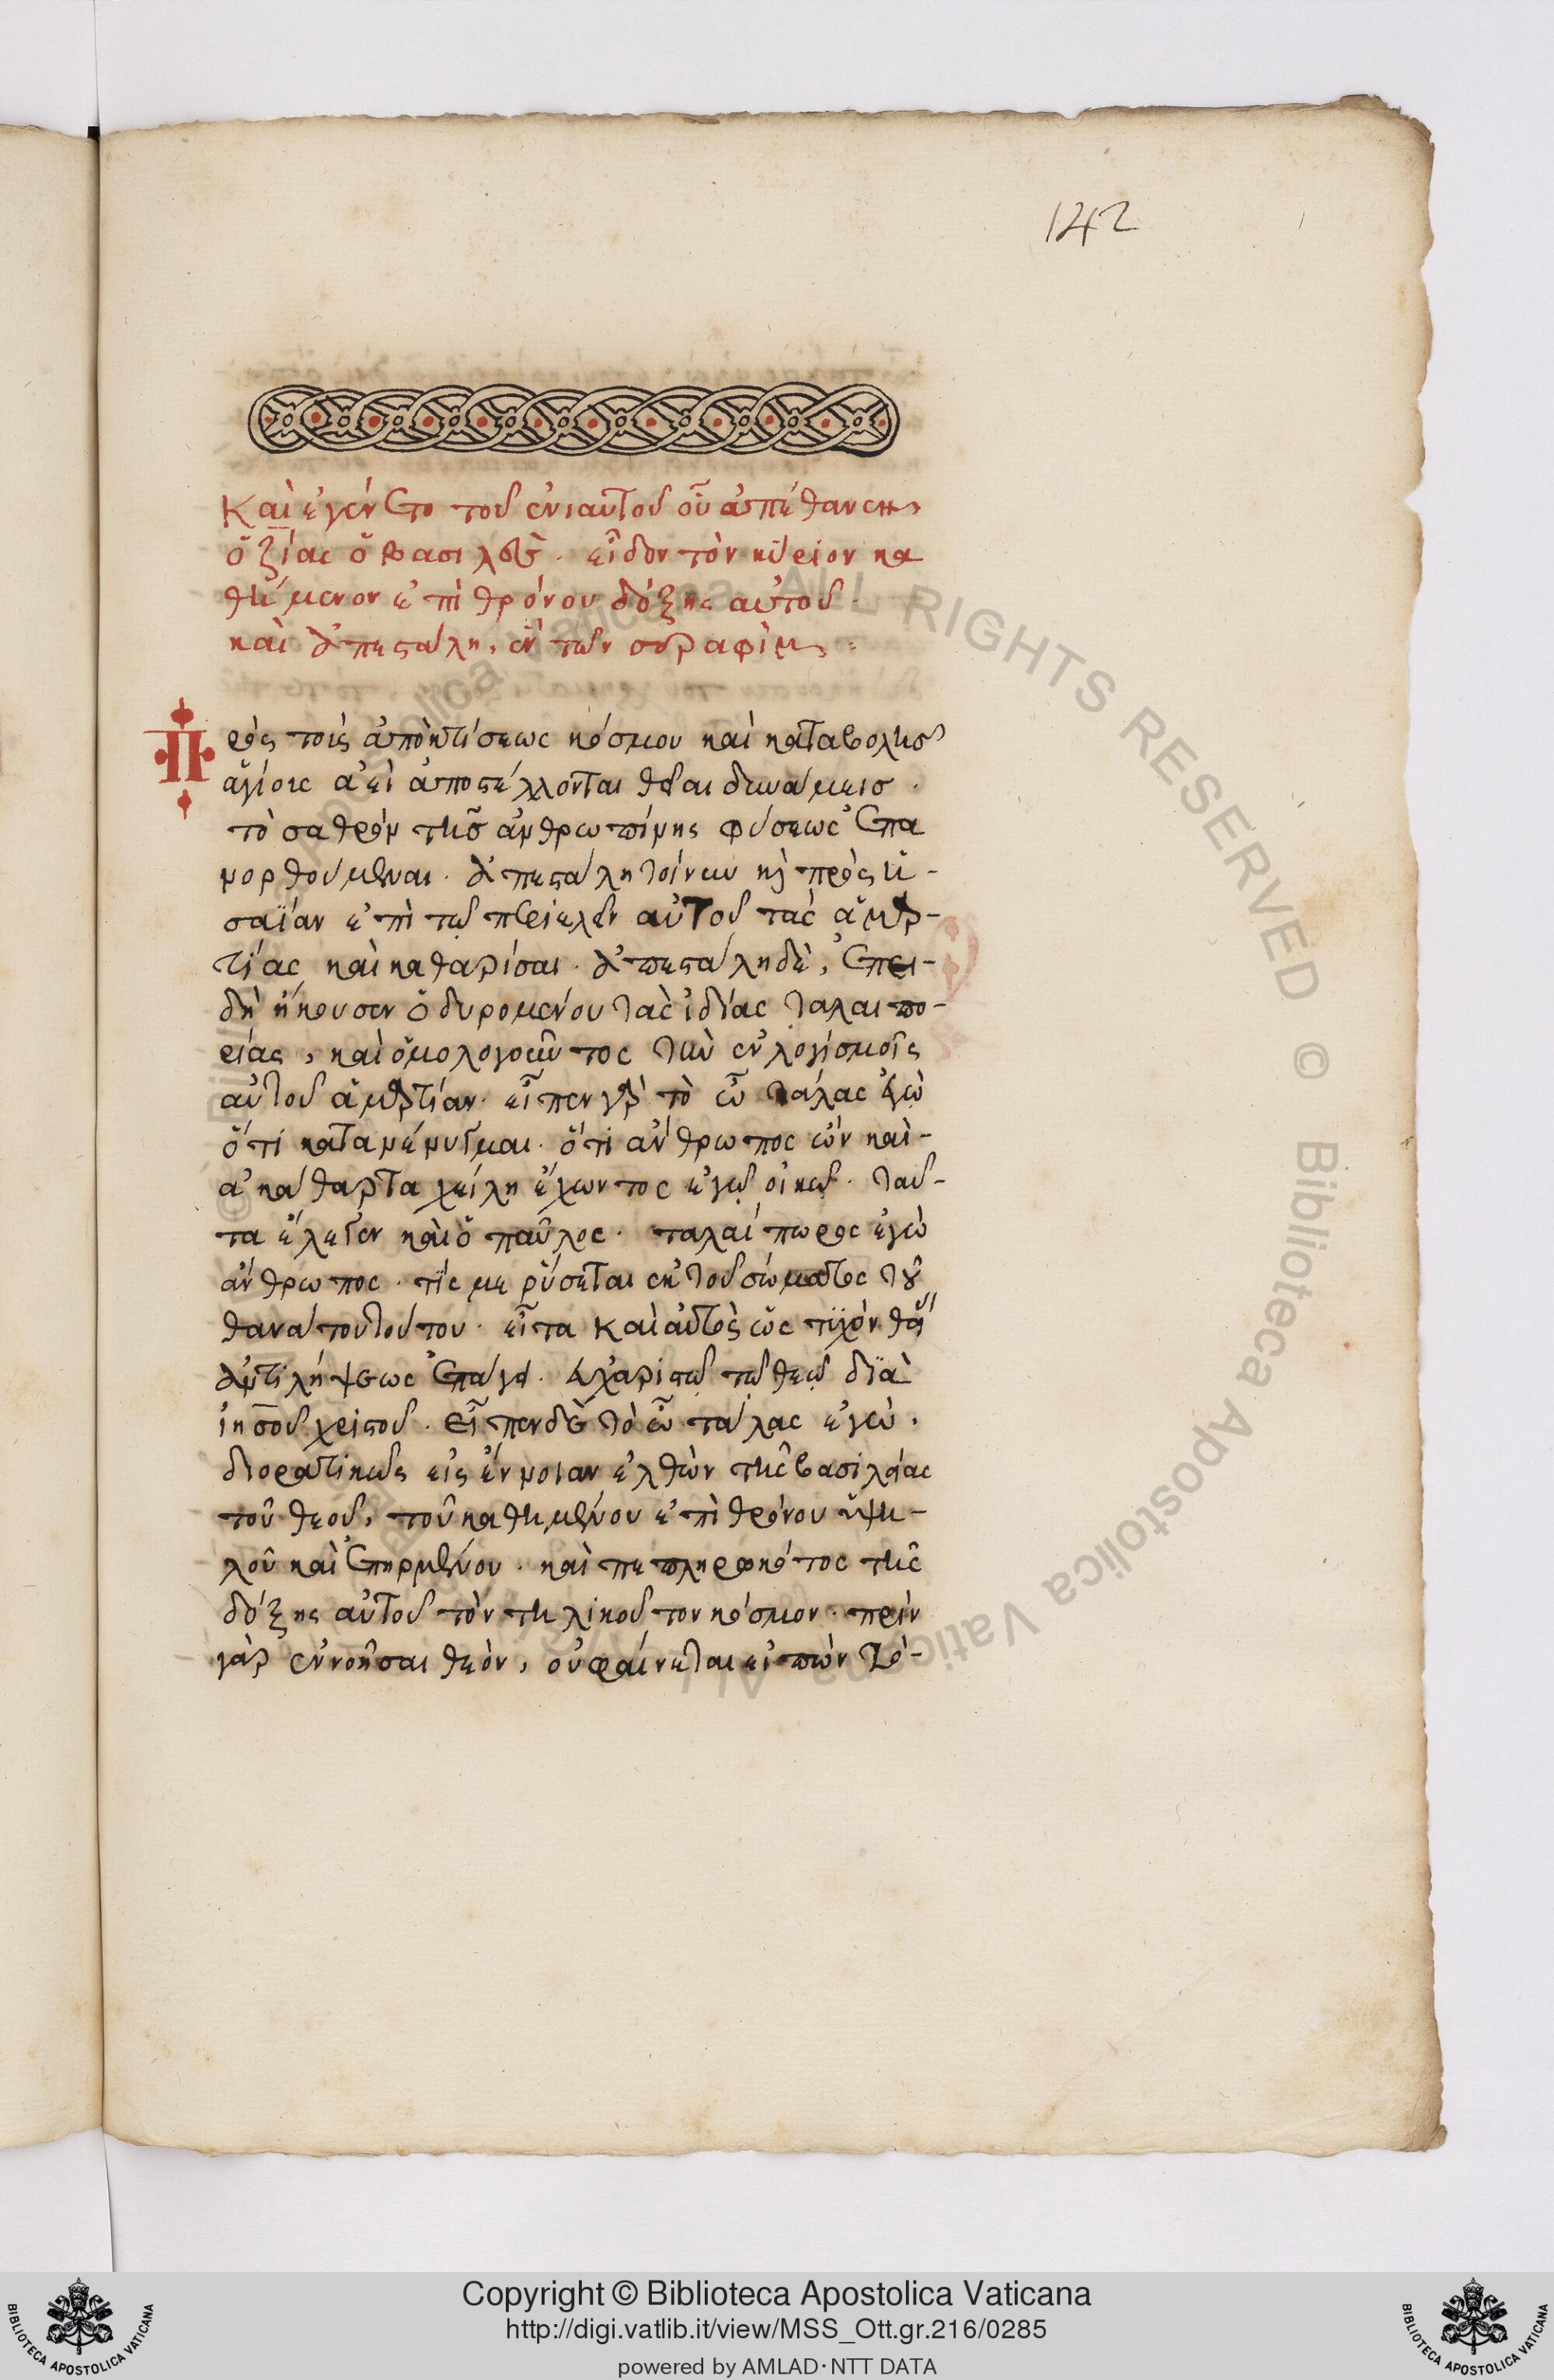 142
Καὶ ἐγένετο τοῦ ἐνιαυτοῦ οὗ ἀπέθανεν
ὀζίας ὁ βασιλεὺς. εἶδον τὸν κύριον κα
θήμενον ἐπὶ θρόνου δόξης αὐτοῦ.
καὶ ἀπεστάλη, ἓν τῶν σεραφὶμ
Πρὸς τοῖς ἀπὸ κτίσεως κόσμου καὶ καταβολῆς
ἁγίοις ἀεὶ ἀποστέλλονται θεῖαι δυνάμεις.
τὸ σαθρὸν τῆς ἀνθρωπίνης φύσεως ἐπα
νορθούμεναι. ἀπεστάλη τοίνυν καὶ πρὸς ἠ-
σαΐαν ἐπὶ τῷ περιελεῖν αὐτοῦ τὰς ἁμαρ-
τίας καὶ καθαρίσαι. ἀπεστάλη δὲ, ἐπει-
δὴ ἤκουσεν ὀδυρομένου τὰς ἰδίας ταλαιπο-
ρίας, καὶ ὁμολογοῦντος τὴν ἐν λογισμοῖς
αὐτοῦ ἁμαρτίαν. εἶπεν γὰρ τὸ ὦ τάλας ἐγὼ
ὅτι κατανένυγμαι. ὅτι ἄνθρωπος ὢν καὶ-
ἀκάθαρτα χείλη ἔχωντος ἐγῷ οἰκῶ. ταῦ-
τα ἔλεγεν καὶ ὁ παῦλος. ταλαίπωρος ἐγὼ
ἄνθρωπος. τίς με ῥύσεται ἐκ τοῦ σώματος τοῦ
θανάτου τούτου. εἶτα καὶ αὐτὸς ὡς τυχὸν θεί
ἀντιλήψεως ἐπάγει. εὐχαριστῶ τῷ θεῷ διὰ
ἰησοῦ χριστοῦ. εἶπεν δὲ τὸ ὦ τάλας ἐγὼ.
διορατικῶς εἰς ἔννοιαν ἐλθὼν τῆς βασιλείας
τοῦ θεοῦ, τοῦ καθημένου ἐπὶ θρόνου ὑψη-
λοῦ καὶ ἐπηρμένου. καὶ πεπληρωκότος τῆς
δόξης αὐτοῦ τὸν τηλικοῦτον κόσμον. πρὶν
γὰρ ἐννοῆσαι θεὸν, οὐ φαίνεται εἰπὼν τό-
© Biblioteca Apostolica Vaticana ALL RIGHTS RESERVED © Biblioteca Apostolica Vaticana ALL
Copyright © Biblioteca Apostolica Vaticana
http://digi.vatlib.it/view/MSS_Ott.gr.216/0285
powered by AMLAD·NTT DATA
BIBLIOTECA APOSTOLICA VATICANA
BIBLIOTECA APOSTOLICA VATICANA